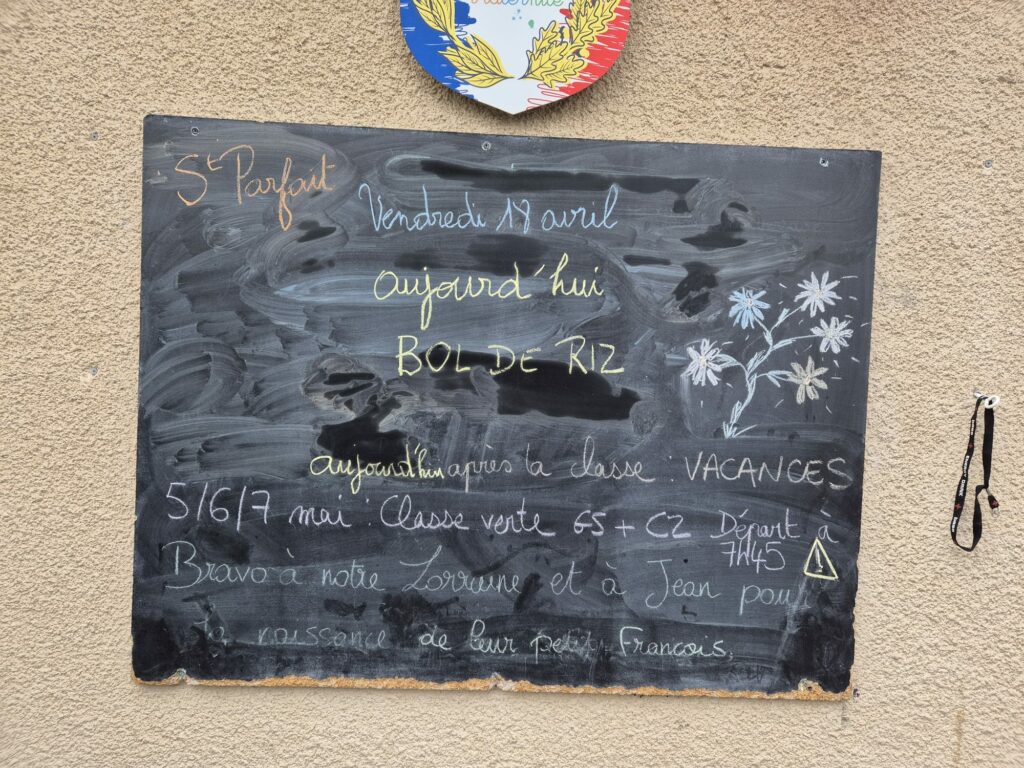 Fraternité
St Parfait
Vendredi 18 avril
aujourd'hui
BOL DE RIZ
aujourd'hui après la classe : VACANCES
5/6/7 mai : Classe verte GS + C2 Départ à
7H45
Bravo à notre Lorraine et à Jean pour
la naissance de leur petit François.